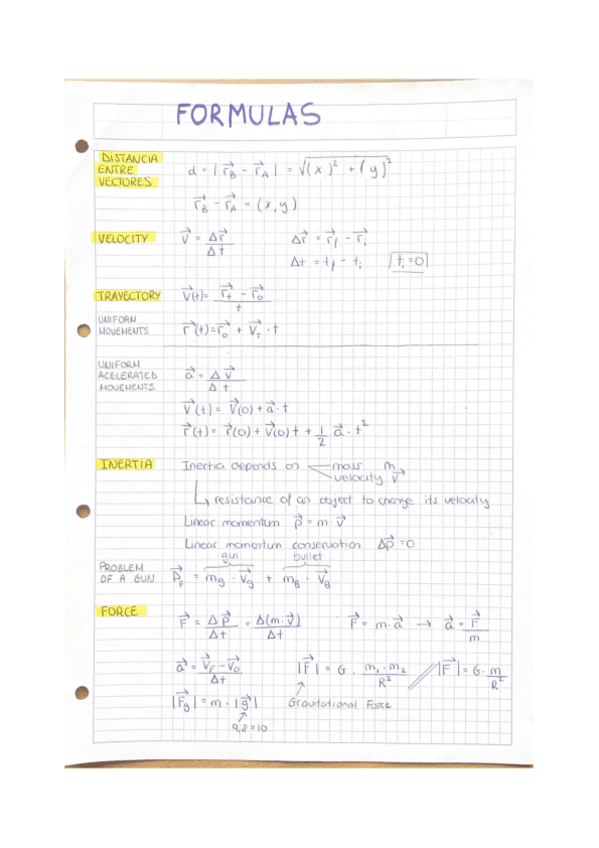 FORMULAS
DISTANCIA ENTRE VECTORES d = |r⃗_B - r⃗_A| = √((x)² + (y)²)
r⃗_B - r⃗_A = (x, y)
VELOCITY v⃗ = Δr⃗/Δt Δr⃗ = r⃗_f - r⃗_i
Δt = t_f - t_i t_i = 0
TRAYECTORY v⃗(t) = (r⃗_t - r⃗_0)/t
UNIFORM MOVEMENTS r⃗(t) = r⃗_0 + v⃗_T · t
UNIFORM ACELERATED MOVEMENTS a⃗ = Δv⃗/Δt
v⃗(t) = v⃗(0) + a⃗ · t
r⃗(t) = r⃗(0) + v⃗(0) t + 1/2 a⃗ · t²
INERTIA Inertia depends on mass m
velocity v⃗
resistance of an object to change its velocity
Linear momentum p⃗ = m · v⃗
Linear momentum conservation Δp⃗ = 0
gun bullet
PROBLEM OF A GUN p⃗_F = m_g · v⃗_g + m_B · v⃗_B
FORCE F⃗ = Δp⃗/Δt = Δ(m·v⃗)/Δt F⃗ = m·a⃗ → a⃗ = F⃗/m
a⃗ = (v⃗_F - v⃗_0)/Δt |F⃗| = G · m₁·m₂/R² // |F⃗| = G · m/R²
|F⃗_g| = m · |g⃗| Gravitational Force
9,8 = 10